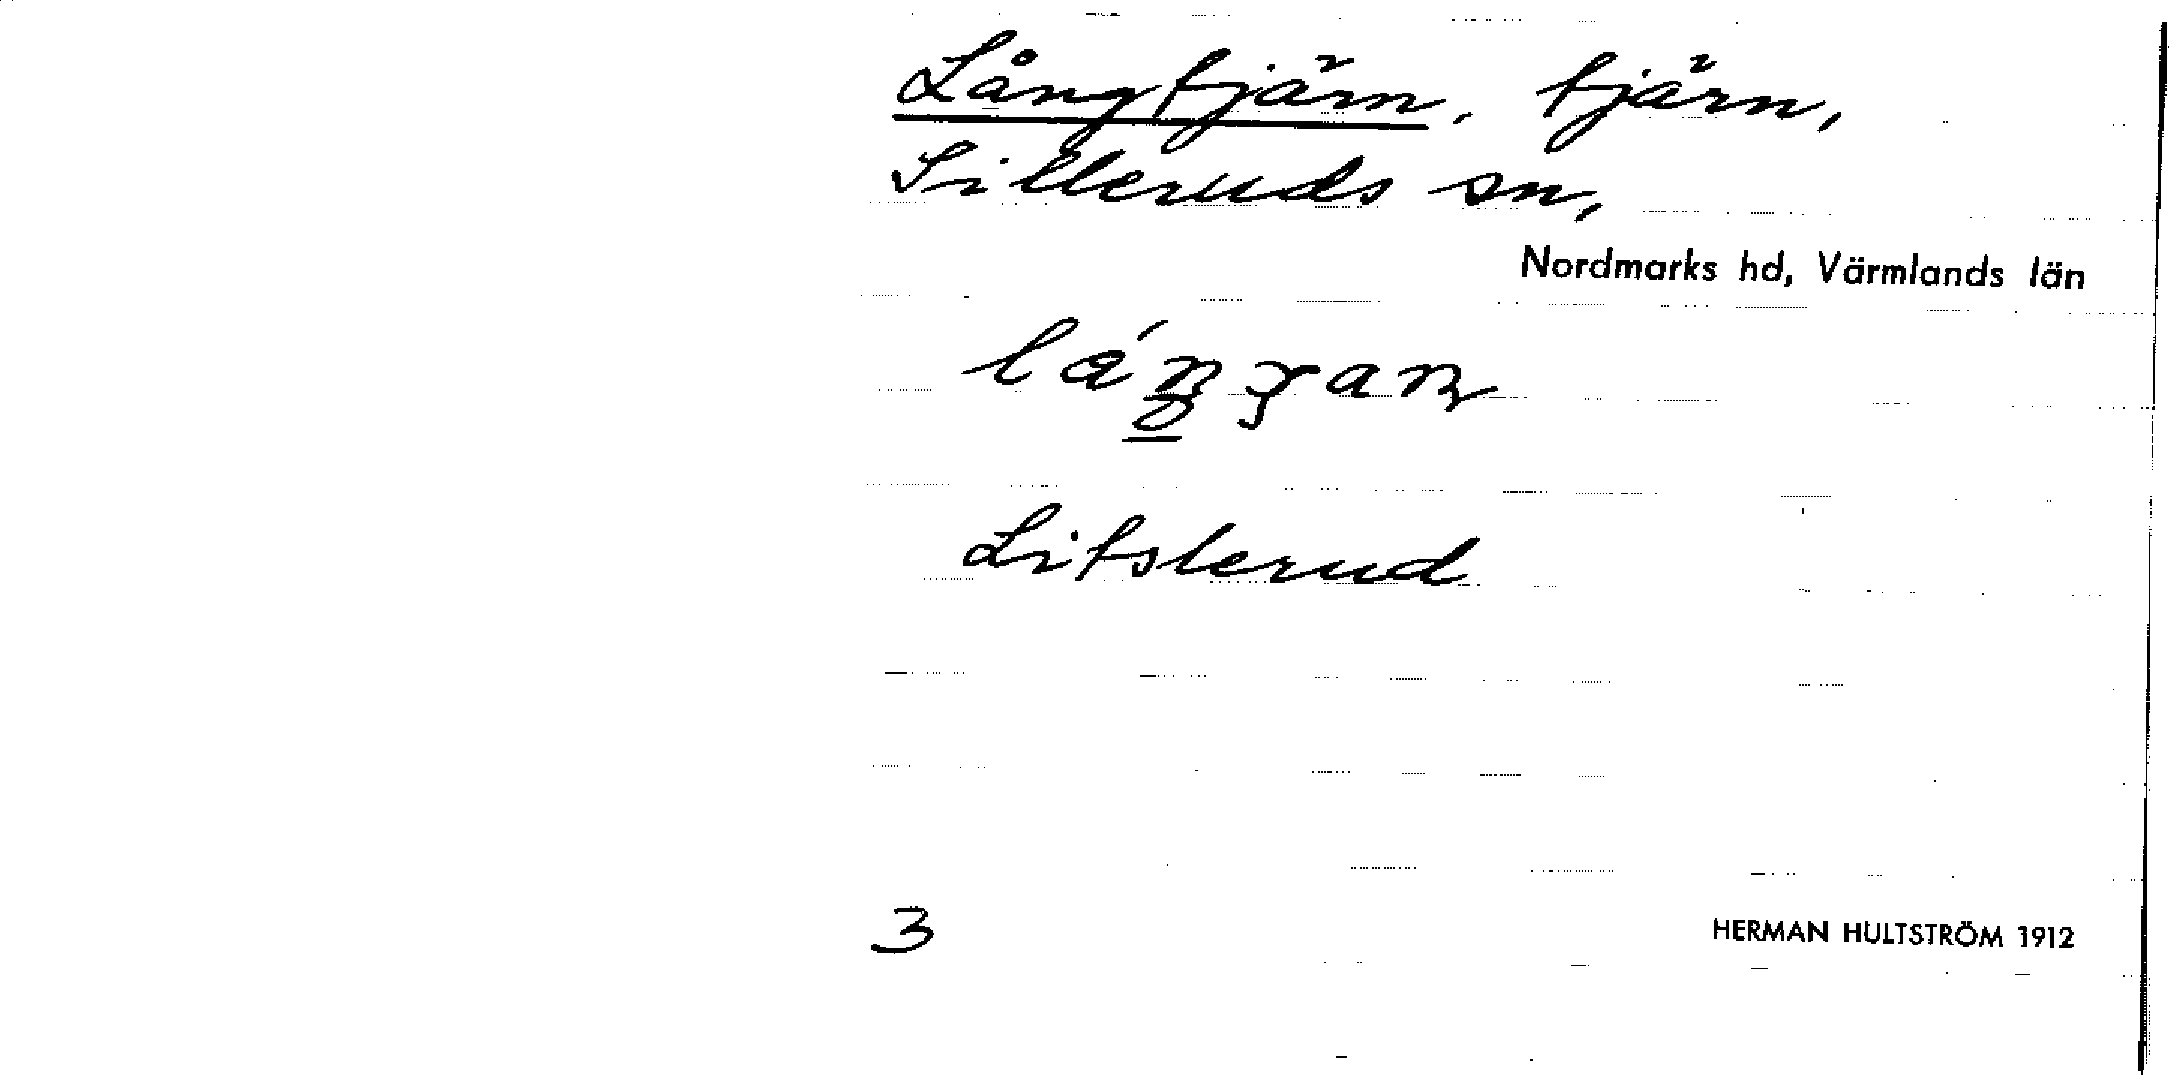 Långtjärn, tjärn,
Silleruds sn,
Nordmarks hd, Värmlands län
Litslerud
3
HERMAN HULTSTRÖM 1912